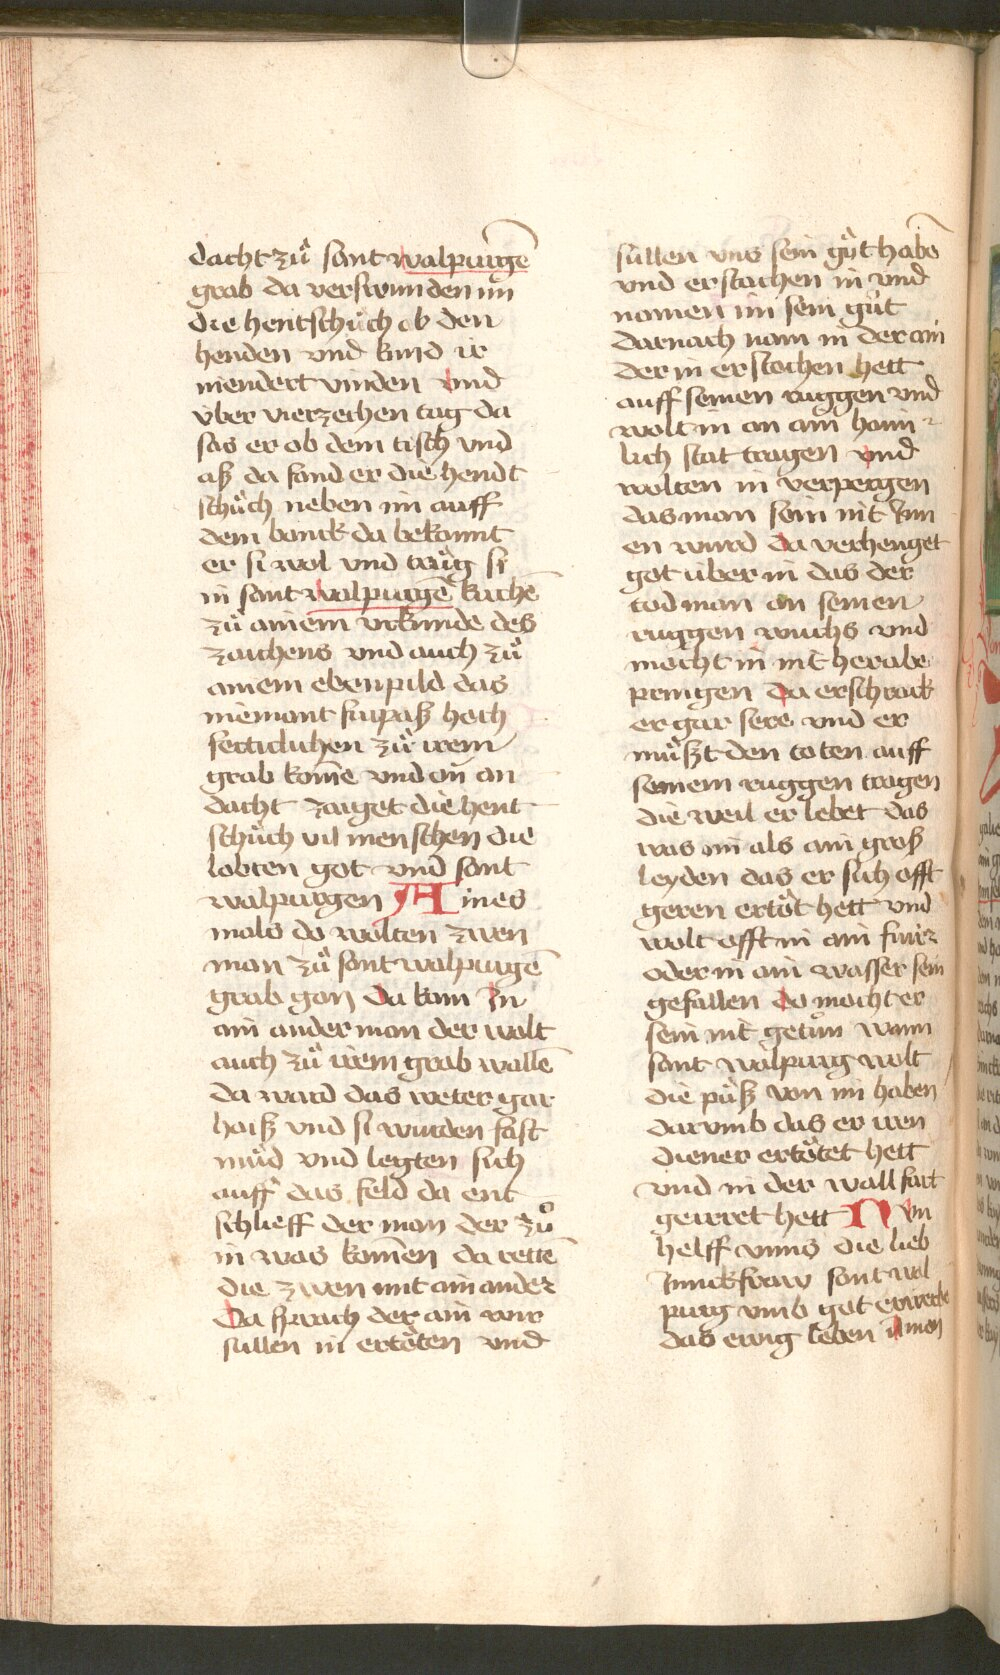 dacht zů sant walpurgē
grab da verswunden im
die hentschůch ob den
henden vnd kund ir
niendert vinden vnd
vber vierzechen tag da
sas er ob dem tisch vnd
aß da fand er die hendt
schůch neben im auff
dem banck da bekannt
er si wol vnd trůg si
in sant walpurgē kirchē
zů ainem vrkunde des
zaichens vnd auch zů
ainem ebenpild das
niemant fürpaß hoch
ferticlichen zů irem
grab kome vnd on an
dacht zaiget die hent
schůch vil menschen die
lobten got vnd sant
walpurgen Aines
mals do wolten zwen
man zů sant walpurgē
grab gan da kam In
ain ander man der wolt
auch zů irem grab wallē
da ward das weter gar
haiß vnd si wurden fast
můd vnd legten sich
auff das feld da ent
schlieff der man der zů
in was komen da rettē
die zwen mit ain ander
Da sprach der ain wir
süllen in ertöten vnd
süllen vns sein gůt habē
vnd erstachen in vnd
namen im sein gůt
darnach nam in der ain
der in erstochen hett
auff seinen ruggen vnd
wolt in an ain haim
lich stat tragen vnd
wolten in verpergen
das man sein nit Inn
en wurd da verhenget
got über in das der
tod man an seinen
ruggen wuchs vnd
mocht in nit herabe
pringen Da erschrack
er gar sere vnd er
můßt den toten auff
seinem ruggen tragen
die weil er lebet das
was im als ain groß
leyden das er sich offt
geren ertöt hett vnd
wolt offt in ain fuir
oder in ain wasser sein
gefallen do mocht er
sein nit getůn wann
sant walpurg wolt
die půß von im haben
darvmb das er iren
diener ertötet hett
vnd in der wallfart
geirret hett Nvn
helff vnns die lieb
Junckfraw sant wal
purg vmb got erwerbē
das ewig leben Amen